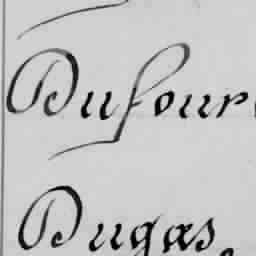 Dufour
Dugas